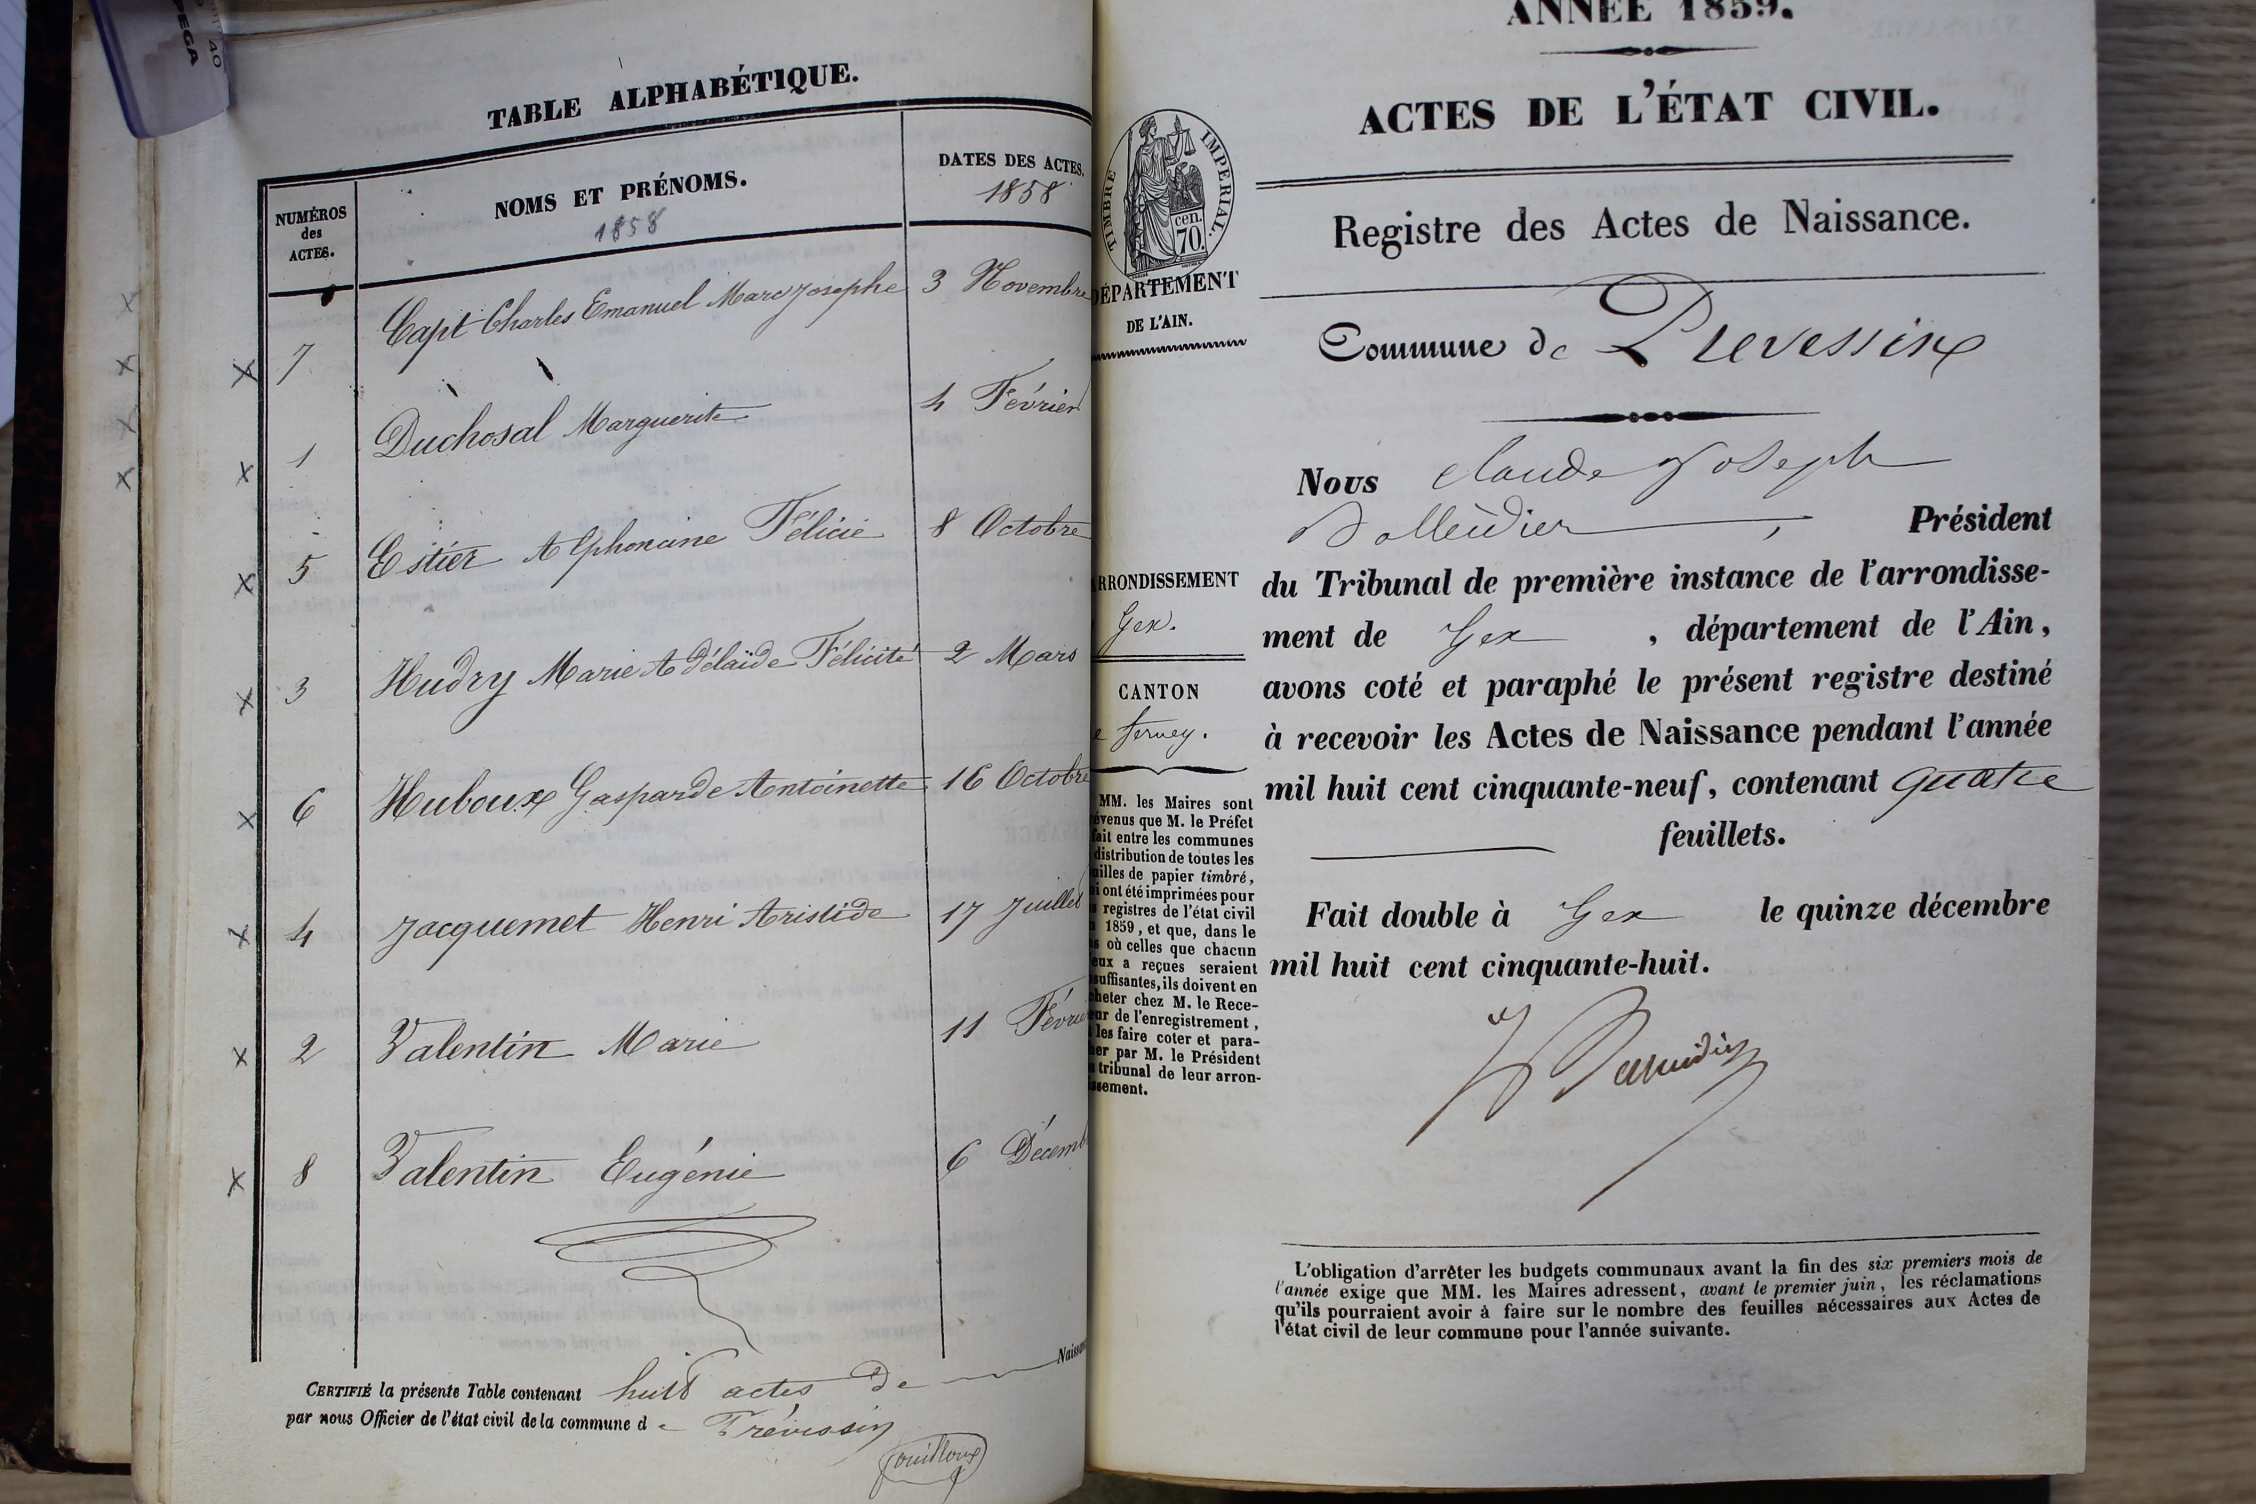 TABLE ALPHABÉTIQUE.
NUMÉROS
des
ACTES.
NOMS ET PRÉNOMS.
1858
DATES DES ACTES.
1858
7 Capt Charles Emanuel Marc Josephe 3 Novembre
1 Duchosal Marguerite 4 Février
5 Estier Alphonsine Félicie 8 Octobre
3 Hudry Marie Adélaïde Félicité 2 Mars
6 Huboux Gasparde Antoinette 16 Octobre
4 Jacquemet Henri Aristide 17 Juillet
2 Valentin Marie 11 Févrie
8 Valentin Eugénie 6 Décemb
Naissan
CERTIFIÉ la présente Table contenant huit actes de
par nous Officier de l'état civil de la commune de Prévessin
ANNÉE 1859.
ACTES DE L'ÉTAT CIVIL.
Registre des Actes de Naissance.
Commune de Prevessin
TIMBRE IMPÉRIAL.
cen.
70.
DÉPARTEMENT
DE L'AIN.
ARRONDISSEMENT
Gex.
CANTON
e Ferney.
MM. les Maires sont
évenus que M. le Préfet
fait entre les communes
distribution de toutes les
uilles de papier timbré,
i ont été imprimées pour
s registres de l'état civil
1859, et que, dans le
s où celles que chacun
eux a reçues seraient
suffisantes, ils doivent en
cheter chez M. le Rece-
eur de l'enregistrement,
les faire coter et para-
her par M. le Président
tribunal de leur arron-
ssement.
Nous Claude Joseph
Président
du Tribunal de première instance de l'arrondisse-
ment de Gex, département de l'Ain,
avons coté et paraphé le présent registre destiné
à recevoir les Actes de Naissance pendant l'année
mil huit cent cinquante-neuf, contenant quatre
feuillets.
Fait double à Gex le quinze décembre
mil huit cent cinquante-huit.
L'obligation d'arrêter les budgets communaux avant la fin des six premiers mois de
l'année exige que MM. les Maires adressent, avant le premier juin, les réclamations
qu'ils pourraient avoir à faire sur le nombre des feuilles nécessaires aux Actes de
l'état civil de leur commune pour l'année suivante.